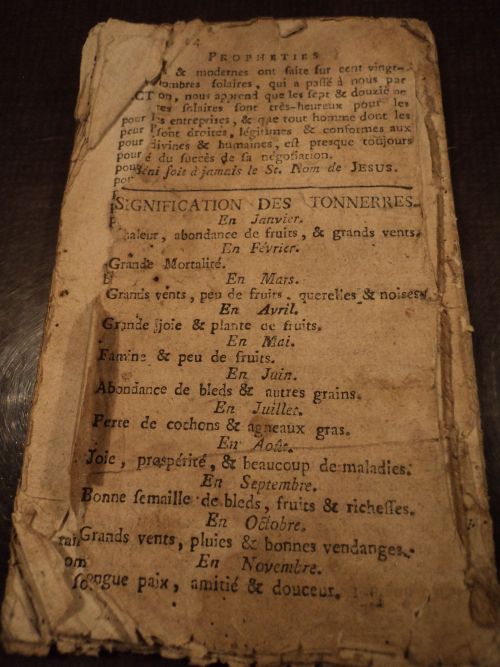 PROPHETIES
& modernes ont faite sur cent vingt-
ombres solaires, qui a passé à nous par
CTion, nous apprend que les sept & douzié ne
res solaires sont très-heureux pour les
pour les entreprises, & que tout homme dont les
peur sont droites, légitimes & conformes aux
pour divines & humaines, est presque toujours
pour é du succès de sa négociation.
ni soit à jamais le St. Nom de JESUS.
SIGNIFICATION DES TONNERRES.
En Janvier.
haleur, abondance de fruits, & grands vents.
En Février.
Grande Mortalité.
En Mars.
Grands vents, peu de fruits, querelles & noises.
En Avril.
Grande joie & plante de fruits.
En Mai.
Famine & peu de fruits.
En Juin.
Abondance de bleds & autres grains.
En Juillet.
Perte de cochons & agneaux gras.
En Août.
Joie, prospérité, & beaucoup de maladies.
En Septembre.
Bonne semaille de bleds, fruits & richesses.
En Octobre.
Grands vents, pluies & bonnes vendanges.
En Novembre.
ongue paix, amitié & douceur.